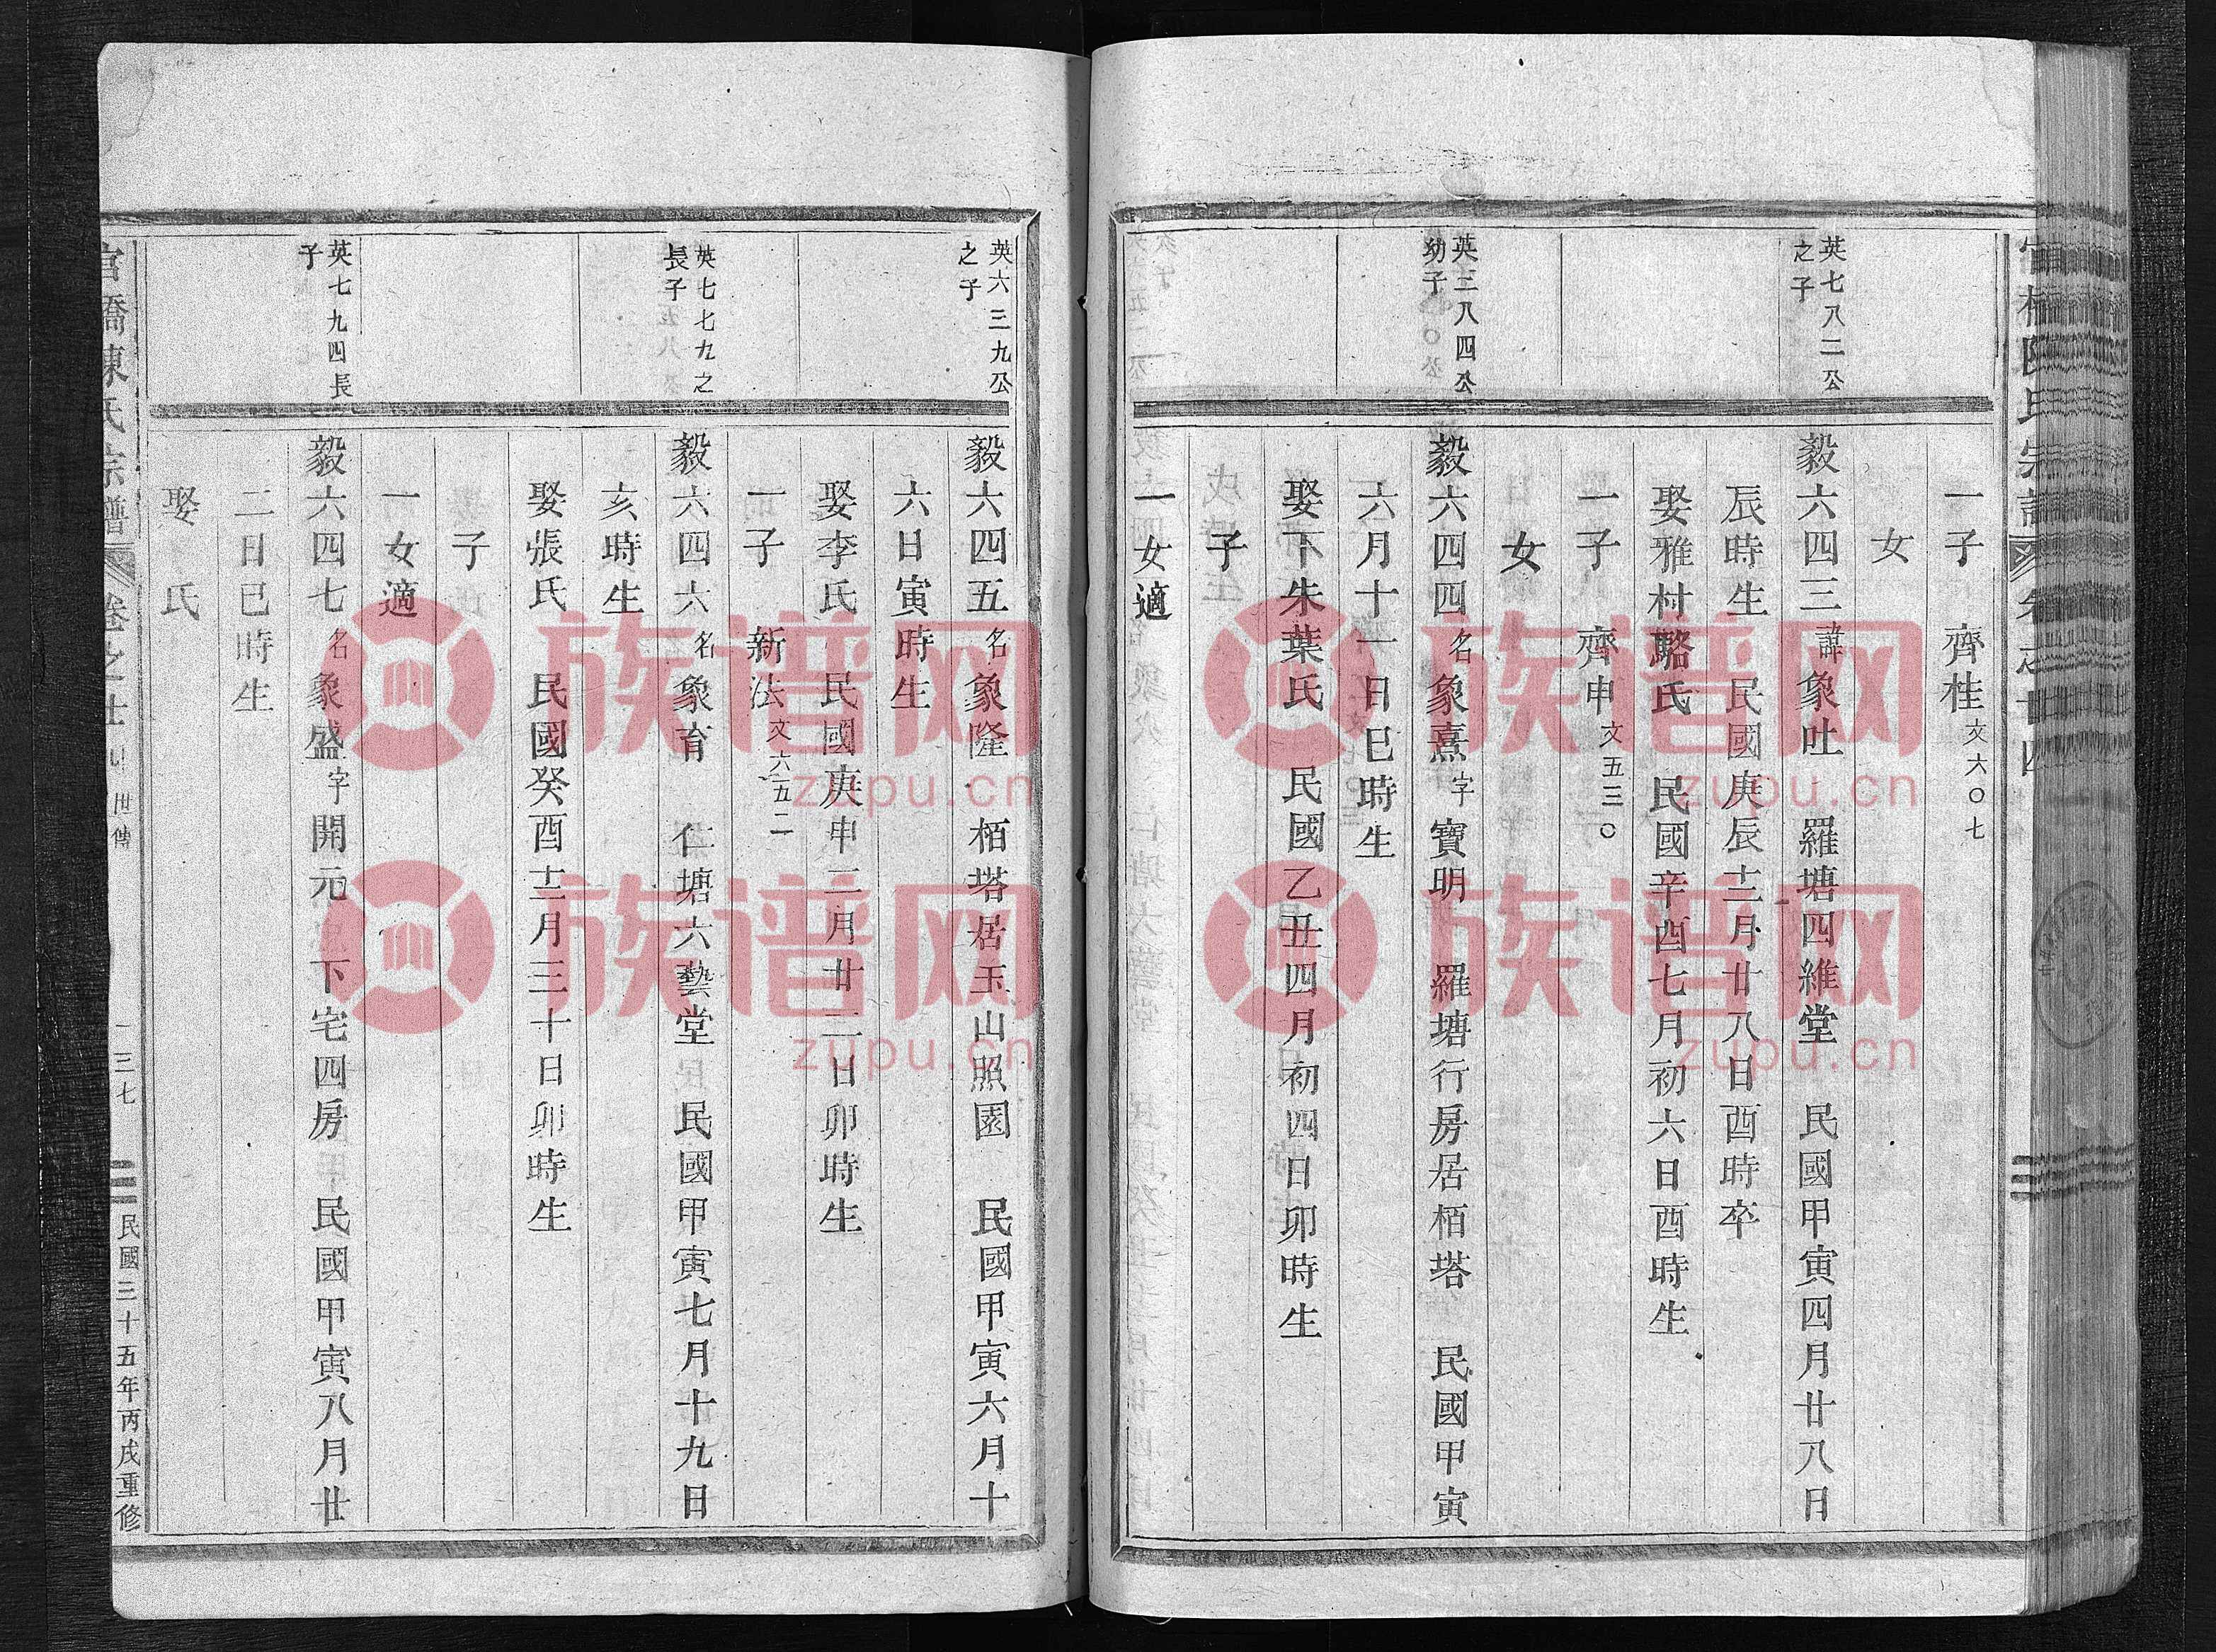 一子 齊桂文六〇七
女
英七八二公
之子
毅六四三諱象吐 羅塘四維堂 民國甲寅四月廿八日
辰時生 民國庚辰十二月廿八日酉時卒
娶雅村駱氏 民國辛酉七月初六日酉時生
一子 齊申文五三〇
女
英三八四公
幼子
毅六四四名象熹字寶明 羅塘行房居栢塔 民國甲寅
六月十一日巳時生
娶下朱葉氏 民國乙丑四月初四日卯時生
子
一女適
英六三九公
之子
毅六四五名象隆 栢塔居玉山照園 民國甲寅六月十
六日寅時生
娶李氏 民國庚申二月廿二日卯時生
一子 新法文六五二
英七七九之
長子
毅六四六名象育 仁塘六藝堂 民國甲寅七月十九日
亥時生
娶張氏 民國癸酉十二月三十日卯時生
子
一女適
英七九四長
子
毅六四七名象盛字開元 下宅四房 民國甲寅八月廿
二日巳時生
娶 氏
官橋陳氏宗譜 卷之 世傳 一三七 民國三十五年丙戌重修
族谱网
zupu.cn
族谱网
zupu.cn
族谱网
zupu.cn
族谱网
zupu.cn